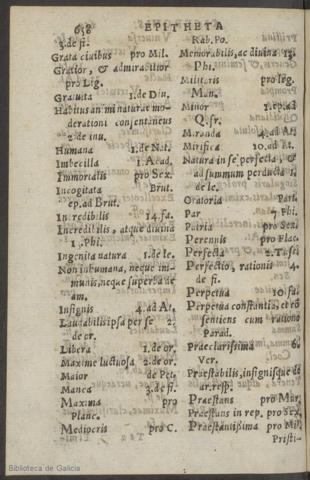 658 EPITHETA
3. de fi.
Grata civibus pro Mil.
Gratior, & admirabilior
pro Lig.
Gravata 1. de Div.
Habitus animi naturae mo-
derationi consentaneus
2. de inu.
Humana 1. de Nat.
Imbecilla 1. Acad.
Immortalis pro Sex.
Incogitata Brut.
ep. ad Brut.
Incredibilis 14. fa.
Incredibilis, atque divina
1. Phi.
Ingenita natura 1. de le.
Non inhumana, neque im-
munis, neque superba de
am.
Insignis 4. ad At.
Laudabilis ipsa per se 2.
de or.
Libera 1. de or.
Maxime luctuosa 2. de or.
Maior de Pet.
Manca 3. de fi.
Maxima pro
Planc.
Mediocris pro C.
Rab. Po.
Memorabilis, ac divina 13.
Phi.
Militaris pro leg.
Man.
Minor 1. ep. ad
Q. fr.
Miranda 4. ad At.
Mirifica 10. ad At.
Natura in se perfecta, &
ad summum perducta 1.
de le.
Oratoria Part.
Par 7. Phi.
Patria pro Sex.
Perennis pro Flac.
Perfecta 2. Tusc.
Perfectio, rationis 4.
de fi.
Perpetua 10. fa.
Perpetua constantia, et cō
sentiens cum ratione
Parad.
Praeclarissima 6.
Ver.
Praestabilis, insignisque de
ar. resp.
Praestans pro Mar.
Praestans in rep. pro Sex.
Praestantissima pro Mil.
Pristi-
Biblioteca de Galicia